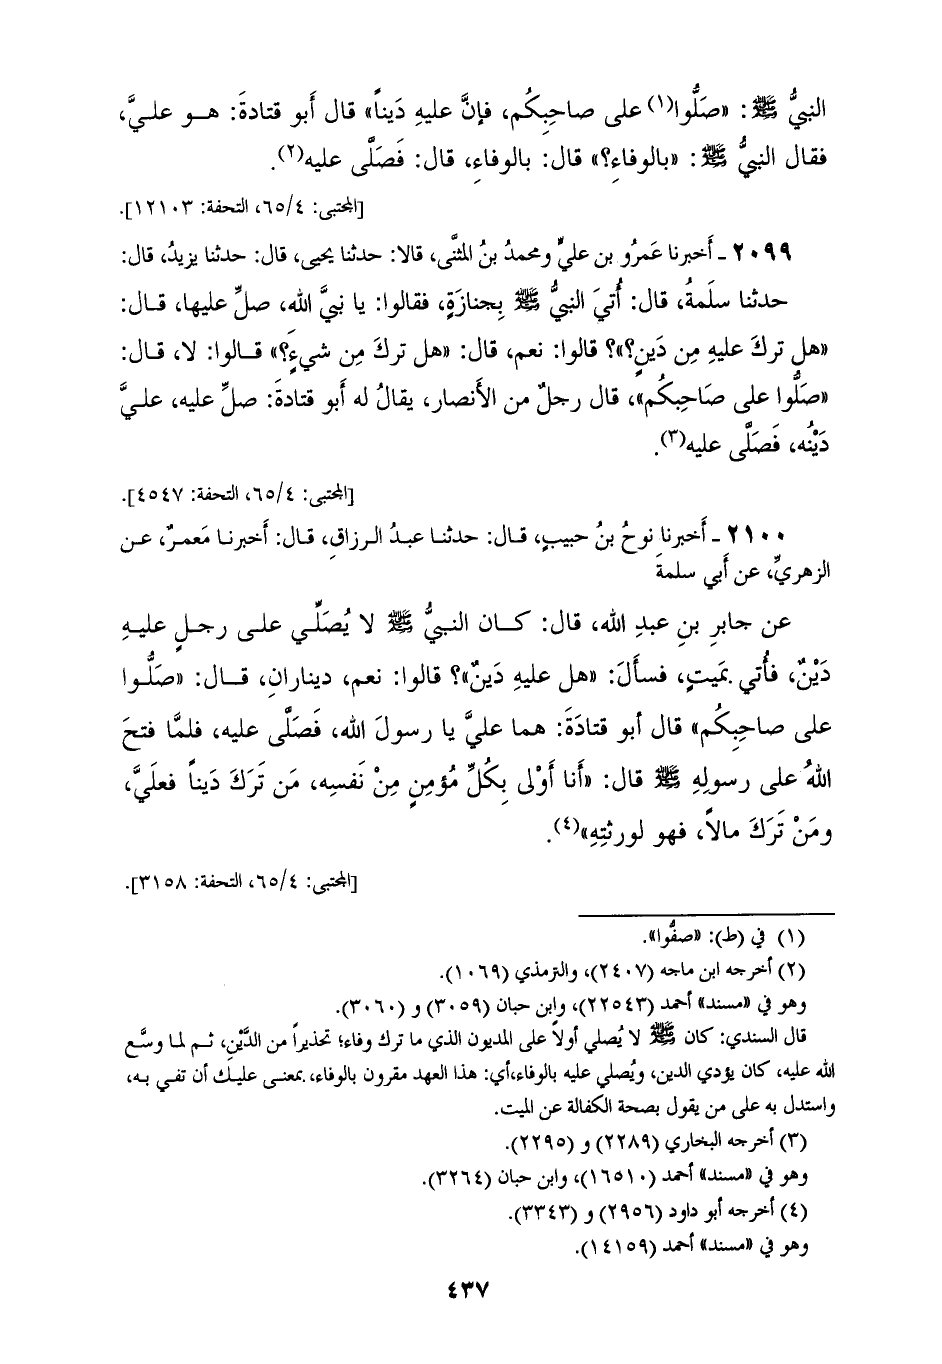 النبيُّ ﷺ: «صَلُّوا(١) على صاحِبِكُم، فإنَّ عليهِ دَيناً» قال أَبو قتادةَ: هــو علــيَّ،
فقال النبيُّ ﷺ: «بالوفاءِ؟» قال: بالوفاءِ، قال: فَصَلَّى عليه(٢).
[المجتبى: ٦٥/٤، التحفة: ١٢١٠٣].
٢٠٩٩ ـ أَخبرنا عَمرُو بن عليٍّ ومحمدُ بنُ المثنَّى، قالا: حدثنا يحيى، قال: حدثنا يزيدُ، قال:
حدثنا سلَمةُ، قال: أُتيَ النبيُّ ﷺ بِجنازَةٍ، فقالوا: يا نبيَّ الله، صلِّ عليها، قــال:
«هل تركَ عليهِ مِن دَينٍ؟»؟ قالوا: نعم، قال: «هل تركَ مِن شيءٍ؟» قــالوا: لا، قال:
«صَلُّوا على صَاحِبِكُم»، قال رجلٌ من الأَنصار، يقالُ له أَبو قتادةَ: صلِّ عليه، عليَّ
دَيْنُه، فَصَلَّى عليه(٣).
[المجتبى: ٦٥/٤، التحفة: ٤٥٤٧].
٢١٠٠ ـ أَخبرنا نوحُ بنُ حبيبٍ، قــال: حدثنـا عبدُ الـرزاقِ، قــال: أَخبرنـا مَعمـرٌ، عـن
الزهريِّ، عن أَبي سلمةَ
عن جابرِ بنِ عبدِ الله، قال: كــان النـبيُّ ﷺ لا يُصَلِّـي علـى رجـلٍ عليـهِ
دَيْنٌ، فأُتي بميتٍ، فسأَلَ: «هل عليهِ دَينٌ»؟ قالوا: نعم، دينارانِ، قــال: «صَلُّــوا
على صاحِبِكُم» قال أَبو قتادَةَ: هما عليَّ يا رسولَ الله، فَصَلَّى عليه، فلمَّا فتحَ
اللهُ على رسولِهِ ﷺ قال: «أَنا أَوْلى بِكُلِّ مُؤمنٍ مِنْ نَفسِه، مَن تَرَكَ دَيناً فعلَيَّ،
ومَنْ تَرَكَ مالاً، فهو لورثتِهِ»(٤).
[المجتبى: ٦٥/٤، التحفة: ٣١٥٨].
(١) في (ط): «صفُّوا».
(٢) أخرجه ابن ماجه (٢٤٠٧)، والترمذي (١٠٦٩).
وهو في «مسند» أحمد (٢٢٥٤٣)، وابن حبان (٣٠٥٩) و (٣٠٦٠).
قال السندي: كان ﷺ لا يُصلي أولاً على المديون الذي ما ترك وفاء؛ تحذيراً من الدَّيْن، ثـم لما وسَّع
الله عليه، كان يؤدي الدين، ويُصلي عليه بالوفاء،أي: هذا العهد مقرون بالوفاء، بمعنـى عليـك أن تفي بـه،
واستدل به على من يقول بصحة الكفالة عن الميت.
(٣) أخرجه البخاري (٢٢٨٩) و (٢٢٩٥).
وهو في «مسند» أحمد (١٦٥١٠)، وابن حبان (٣٢٦٤).
(٤) أخرجه أبو داود (٢٩٥٦) و (٣٣٤٣).
وهو في «مسند» أحمد (١٤١٥٩).
٤٣٧